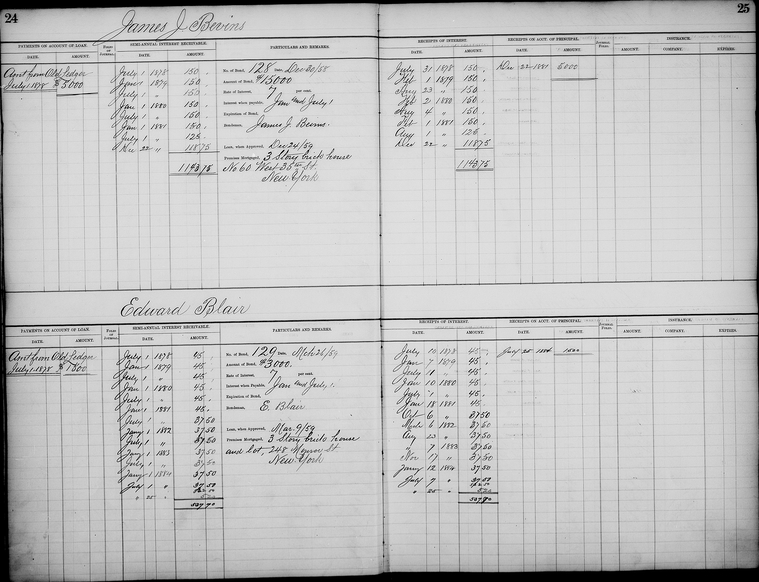 24
25
James J Bevins
PAYMENTS ON ACCOUNT OF LOAN. SEMI-ANNUAL INTEREST RECEIVABLE. PARTICULARS AND REMARKS.
DATE. AMOUNT. DATE. AMOUNT.
Amt from Old Ledger
July 1 1878 $5000
July 1 1878 150
Jany 1 1879 150
July 1 " 150
Jan 1 1880 150
July 1 " 150
Jan 1 1881 150
July 1 " 125
Dec 22 " 118 75
1143 75
No. of Bond, 128 Date, Dec 20/58
Amount of Bond, $15000
Rate of Interest, 7 per cent.
Interest when payable, Jan and July 1
Expiration of Bond,
Bondsman, James J. Bevins.
Loan, when Approved, Dec 24/59
Premises Mortgaged, 3 Story brick house
No 60 West 35th St.
New York
RECEIPTS OF INTEREST. RECEIPTS ON ACCT. OF PRINCIPAL. INSURANCE.
DATE. AMOUNT. DATE. AMOUNT. AMOUNT. COMPANY. EXPIRES.
July 31 1878 150
Feb 1 1879 150
Aug 23 " 150
Feb 21 1880 150
Aug 4 " 150
Feb 1 1881 150
Aug 1 " 125
Dec 22 " 118 75
1143 75
Dec 22 1881 5000
Edward Blair
PAYMENTS ON ACCOUNT OF LOAN. SEMI-ANNUAL INTEREST RECEIVABLE. PARTICULARS AND REMARKS.
DATE. AMOUNT. DATE. AMOUNT.
Amt from Old Ledger
July 1 1878 $1800
July 1 1878 45
Jan 1 1879 45
July 1 " 45
Jan 1 1880 45
July 1 " 45
Jan 1 1881 45
July 1 " 37.50
Jany 1 1882 37.50
July 1 " 37.50
Jany 1 1883 37.50
July 1 " 37.50
Jany 1 1884 37.50
July 1 " 37.50
" 25 "
507 70
No. of Bond, 129 Date, Mch 26/59
Amount of Bond, $3000.
Rate of Interest, 7 per cent.
Interest when Payable, Jan and July 1.
Expiration of Bond,
Bondsman, E. Blair
Loan, when Approved, Mar. 9/59
Premises Mortgaged, 3 Story brick house
and lot, 248 Monroe St.
New York
RECEIPTS OF INTEREST. RECEIPTS ON ACCT. OF PRINCIPAL. INSURANCE.
DATE. AMOUNT. DATE. AMOUNT. AMOUNT. COMPANY. EXPIRES.
July 10 1878 45
Jan 7 1879 45
July 11 " 45
Jan 10 1880 45
July 1 " 45
Jan 18 1881 45
Oct 6 " 37.50
Mch 6 1882 37.50
Aug 23 " 37.50
" 7 1883 37.50
Nov 17 " 37.50
Jany 12 1884 37.50
July 7 " 37.50
" 25 "
507 70
July 25 1884 1500